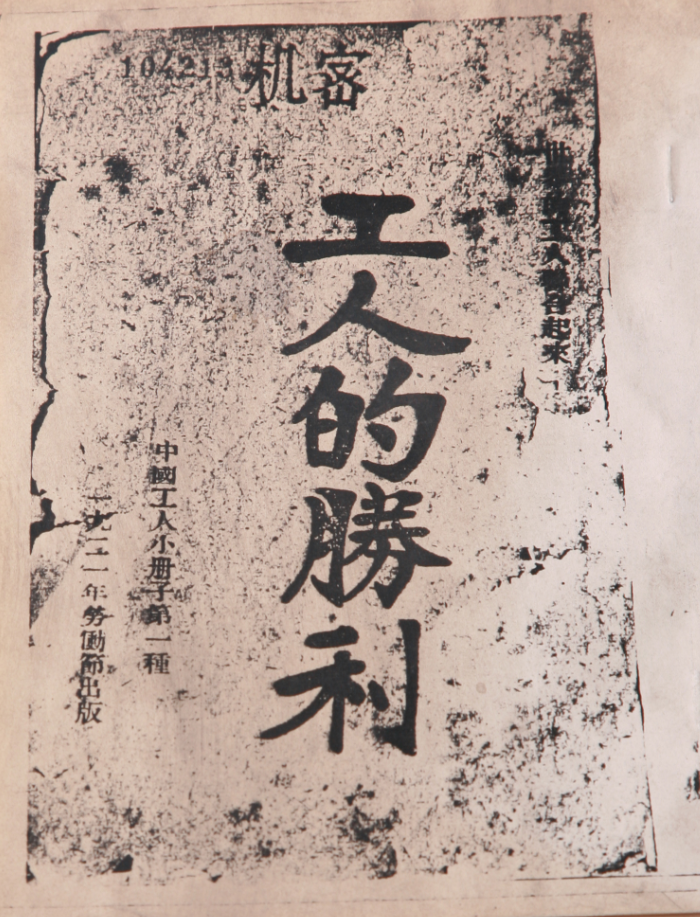 机密
世界的工人聯合起來！
工人的勝利
中國工人小册子第一種
一九二一年勞働節出版